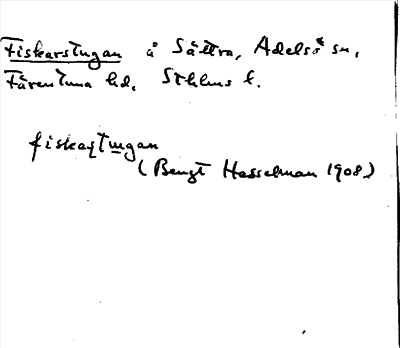 Fiskarstugan å Sättra, Adelsö sn,
Färentuna hd, Sthlms l.
fiskaʂtu̲gan
(Bengt Hesselman 1908)